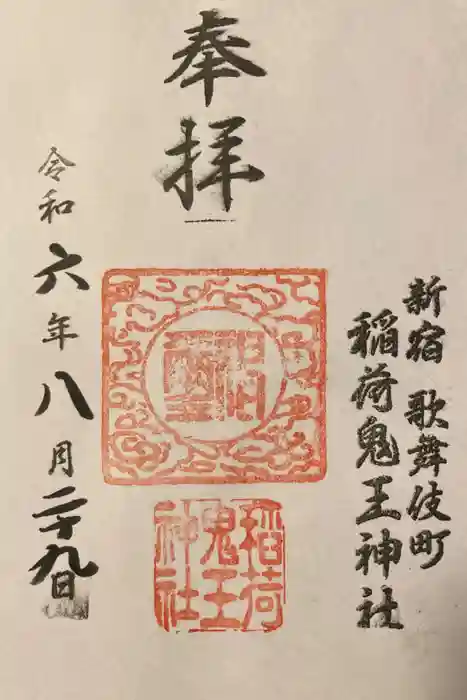 新宿 歌舞伎町
稲荷鬼王神社
奉拝
稲荷
鬼王
神社
令和六年八月二十九日